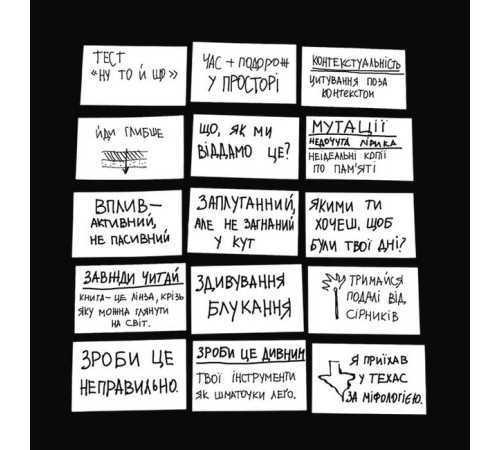 ТЕСТ
«НУ ТО Й ЩО»
ЧАС + ПОДОРОЖ
У ПРОСТОРІ
КОНТЕКСТУАЛЬНІСТЬ
ЦИТУВАННЯ ПОЗА
КОНТЕКСТОМ
ЙДИ ГЛИБШЕ
ЩО, ЯК МИ
ВІДДАМО ЦЕ?
МУТАЦІЇ
НЕДОЧУТА ЛІРИКА
НЕІДЕАЛЬНІ КОПІЇ
ПО ПАМ'ЯТІ
ВПЛИВ—
АКТИВНИЙ,
НЕ ПАСИВНИЙ
ЗАПЛУТАННИЙ,
АЛЕ НЕ ЗАГНАНИЙ
У КУТ
ЯКИМИ ТИ
ХОЧЕШ, ЩОБ
БУЛИ ТВОЇ ДНІ?
ЗАВЖДИ ЧИТАЙ
КНИГА– ЦЕ ЛІНЗА, КРІЗЬ
ЯКУ МОЖНА ГЛЯНУТИ
НА СВІТ.
ЗДИВУВАННЯ
БЛУКАННЯ
ТРИМАЙСЯ
ПОДАЛІ ВІД
СІРНИКІВ
ЗРОБИ ЦЕ
НЕПРАВИЛЬНО.
ЗРОБИ ЦЕ ДИВНИМ
ТВОЇ ІНСТРУМЕНТИ
ЯК ШМАТОЧКИ ЛЕГО.
Я ПРИЇХАВ
У ТЕХАС
ЗА МІФОЛОГІЄЮ.